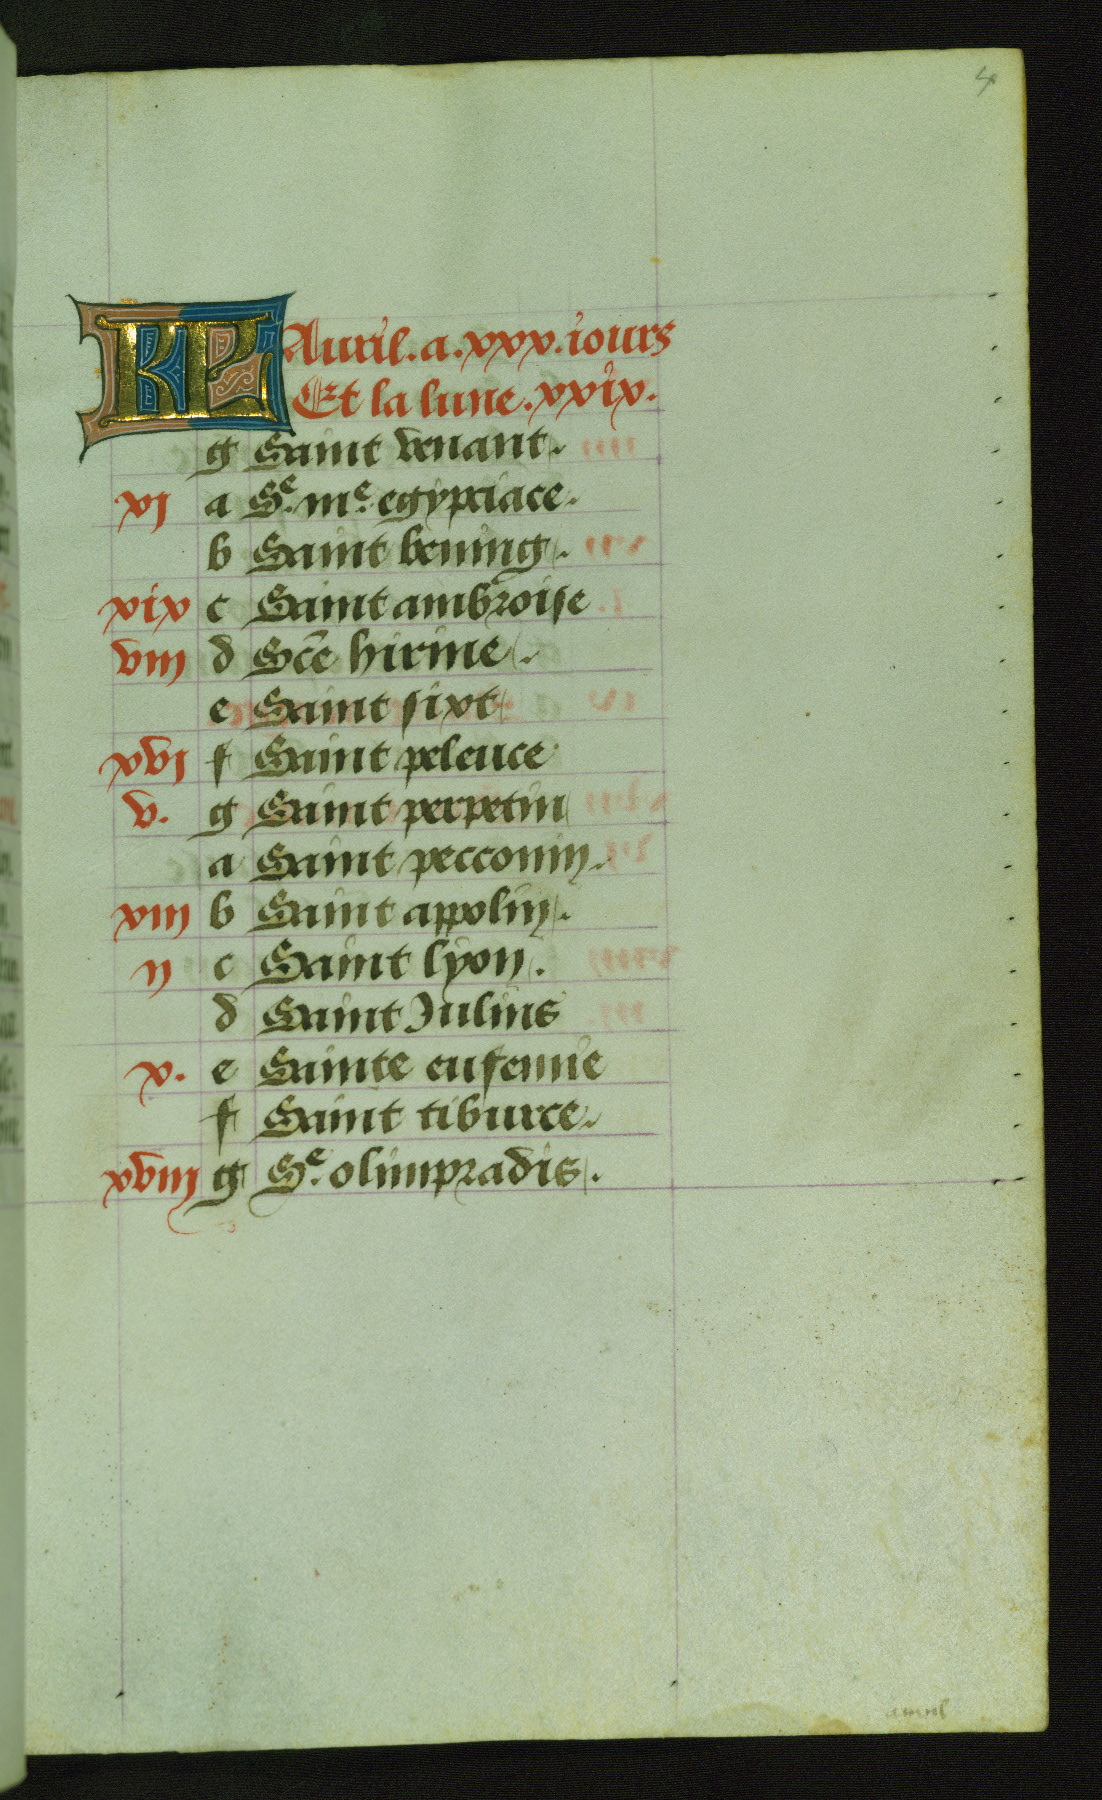 4
KL Auril .a. xxx. iours
Et la lune. xxix.
g Saint venant.
xi a Sᵉ. mᵉ. egypciace.
b Saint bening.
xix c Saint ambroise
viii d Sc̄e hirine.
e Saint sixt
xvi f Saint peleuce
v. g Saint perpetin
a Saint pecconin.
xiii b Saint appolin.
ii c Saint lyon.
d Saint Julius
x. e Sainte eufemie
f Saint tiburce.
xviii g Sᵉ. olimpradis.